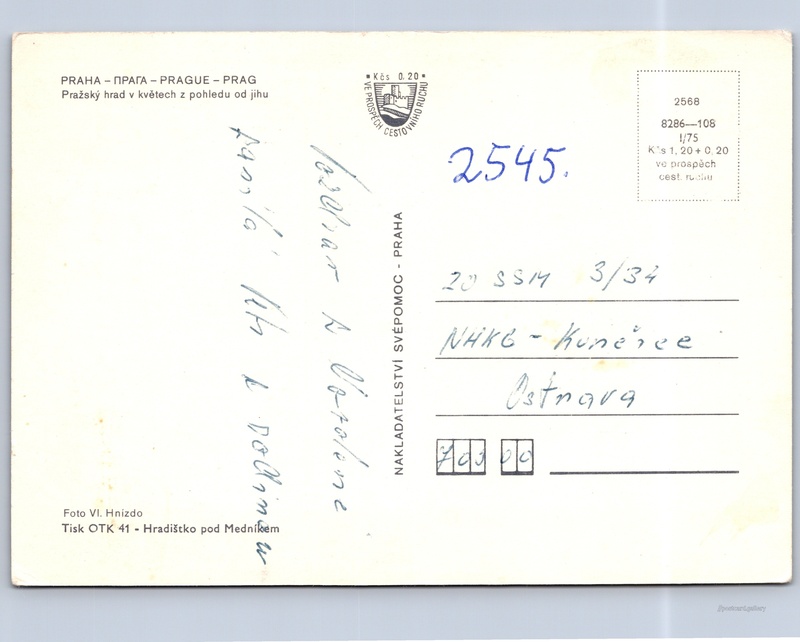 PRAHA – ПРАГА – PRAGUE – PRAG
Pražský hrad v květech z pohledu od jihu
Kčs 0.20
VE PROSPĚCH CESTOVNÍHO RUCHU
Pozdrav z
zasílá
z rodinou
Foto Vl. Hnízdo
Tisk OTK 41 - Hradištko pod Medníkem
NAKLADATELSTVÍ SVÉPOMOC - PRAHA
2545.
2568
8286—108
I/75
Kčs 1,20 + 0,20
ve prospěch
cest. ruchu
20 SSM 3/34
NHKG - Kunčice
Ostrava
703 00